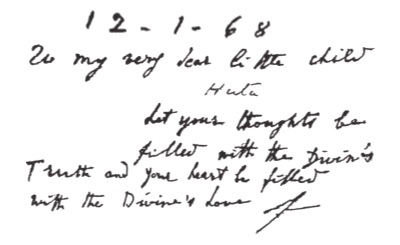 12-1-68
To my very dear little child
Huta
Let your thoughts be
filled with the Divine's
Truth and your heart be filled
with the Divine's Love